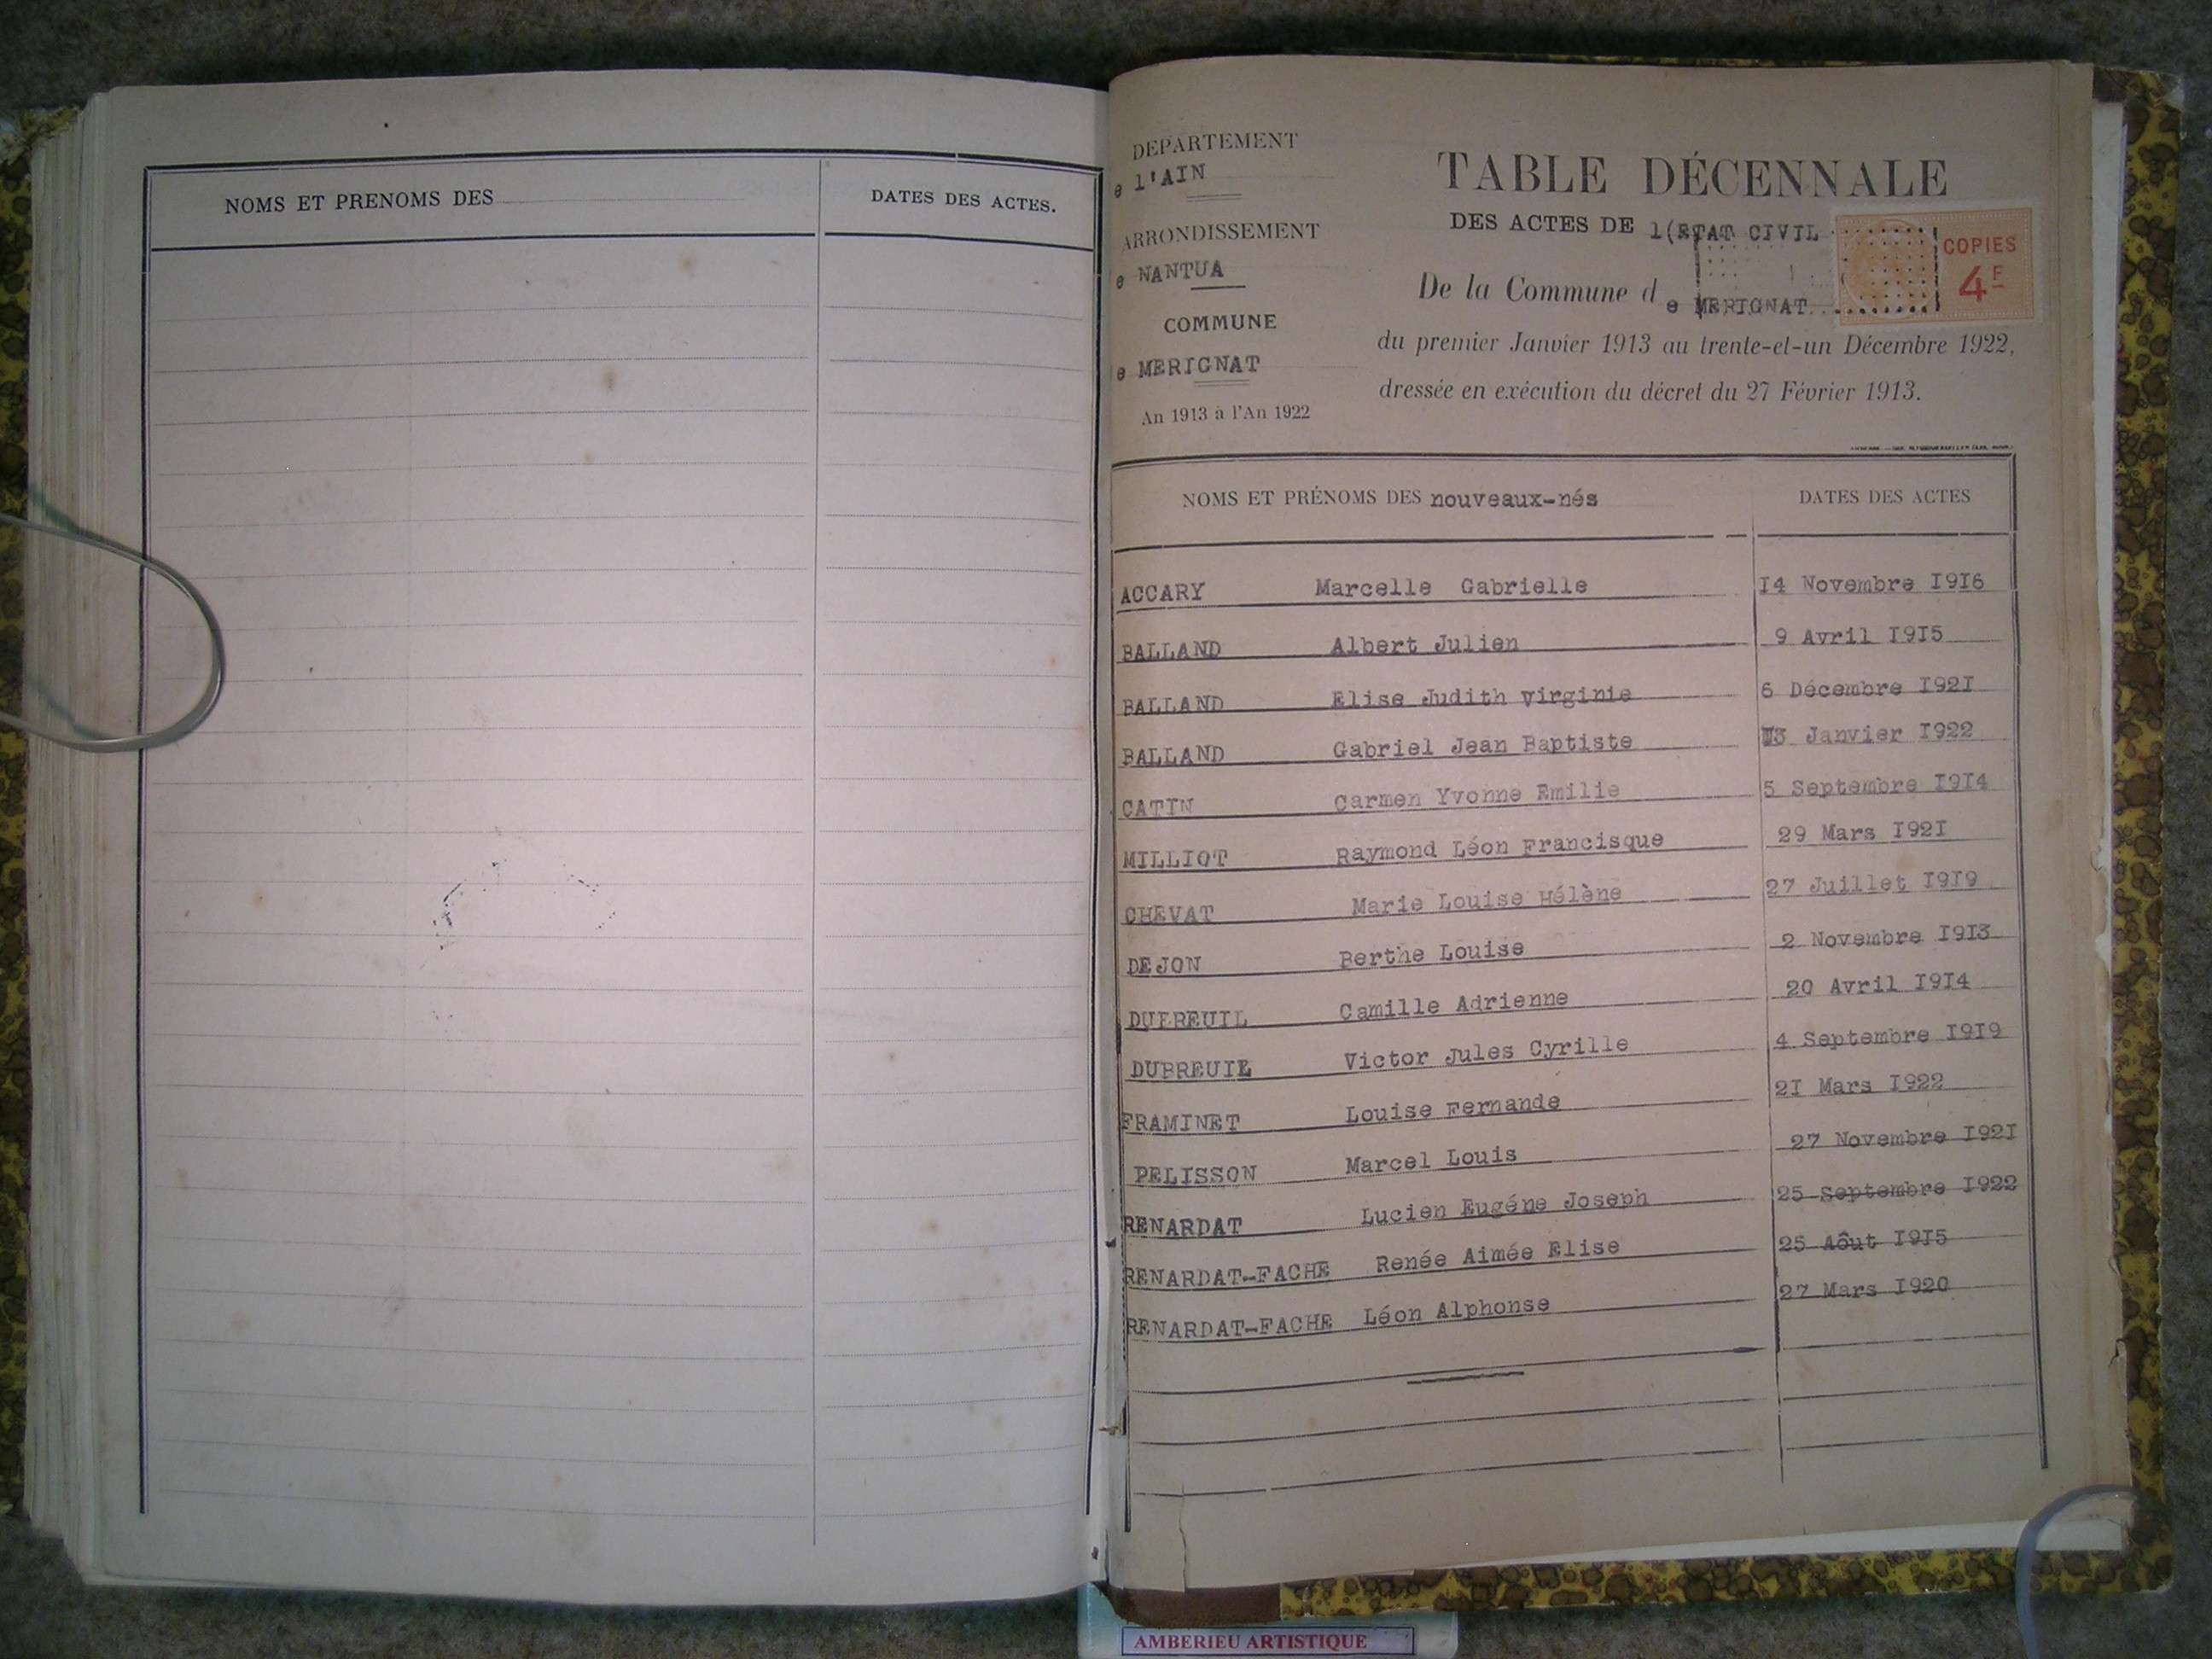 NOMS ET PRENOMS DES
DATES DES ACTES.
DEPARTEMENT
e l'AIN
ARRONDISSEMENT
e NANTUA
COMMUNE
e MERIGNAT
An 1913 à l'An 1922
TABLE DÉCENNALE
DES ACTES DE l(ETAT CIVIL
De la Commune d e MERIGNAT
COPIES
4F
du premier Janvier 1913 au trente-et-un Décembre 1922,
dressée en exécution du décret du 27 Février 1913.
NOMS ET PRÉNOMS DES nouveaux-nés DATES DES ACTES
ACCARY Marcelle Gabrielle I4 Novembre I9I6
BALLAND Albert Julien 9 Avril I9I5
BALLAND Elise Judith Virginie 6 Décembre I92I
BALLAND Gabriel Jean Baptiste I3 Janvier I922
CATIN Carmen Yvonne Emilie 5 Septembre I9I4
MILLIOT Raymond Léon Francisque 29 Mars I92I
CHEVAT Marie Louise Hélène 27 Juillet I9I9
DEJON Berthe Louise 2 Novembre I9I3
DUBREUIL Camille Adrienne 20 Avril I9I4
DUBREUIL Victor Jules Cyrille 4 Septembre I9I9
FRAMINET Louise Fernande 2I Mars I922
PELISSON Marcel Louis 27 Novembre I92I
RENARDAT Lucien Eugéne Joseph 25 Septembre I922
RENARDAT-FACHE Renée Aimée Elise 25 Aôut I9I5
RENARDAT-FACHE Léon Alphonse 27 Mars I920
AMBERIEU ARTISTIQUE